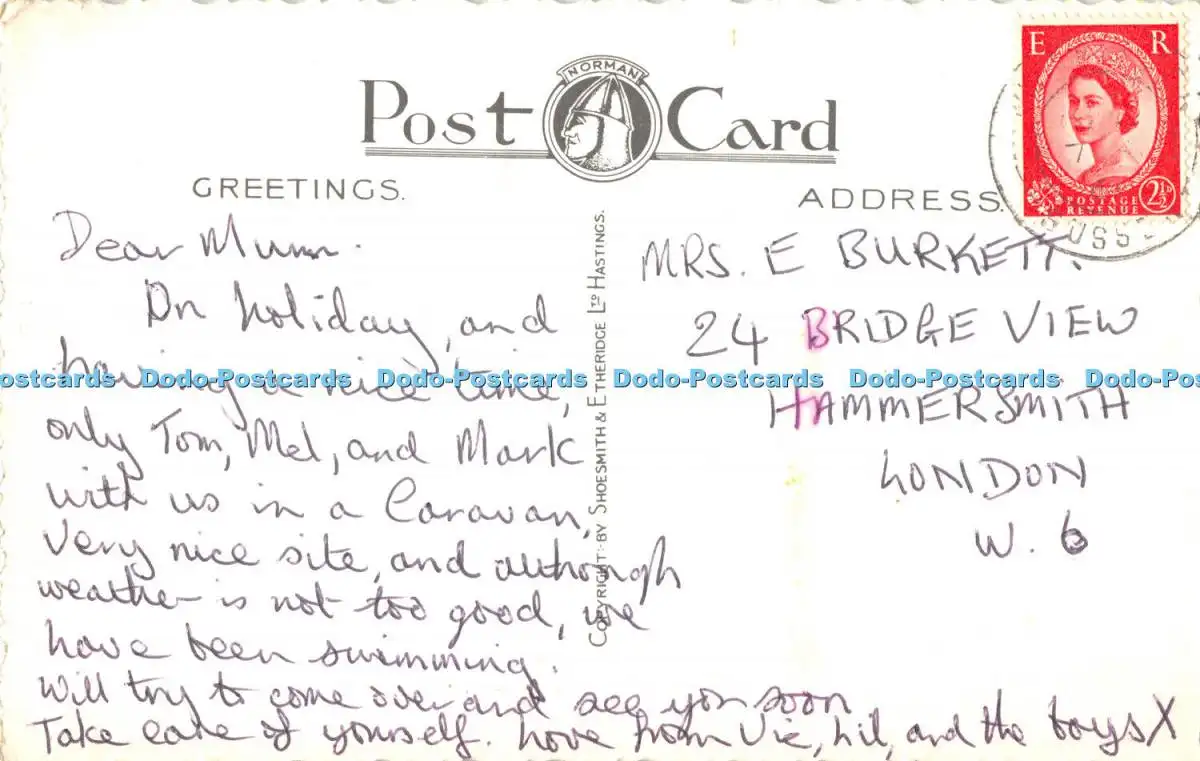 NORMAN
Post Card
GREETINGS.
ADDRESS.
E R
POSTAGE
REVENUE
2½D
Dear Mum.
On holiday, and
having a nice time,
only Tom, Mel, and Mark
with us in a Caravan,
Very nice site, and although
weather is not too good, we
have been swimming.
Will try to come over and see you soon
Take care of yourself. Love from Vic, Lil, and the boys X
COPYRIGHT:-BY SHOESMITH & ETHERIDGE LTD HASTINGS.
MRS. E BURKETT.
24 BRIDGE VIEW
HAMMERSMITH
LONDON
W. 6
ostcards Dodo-Postcards Dodo-Postcards Dodo-Postcards Dodo-Postcards Dodo-Postcards